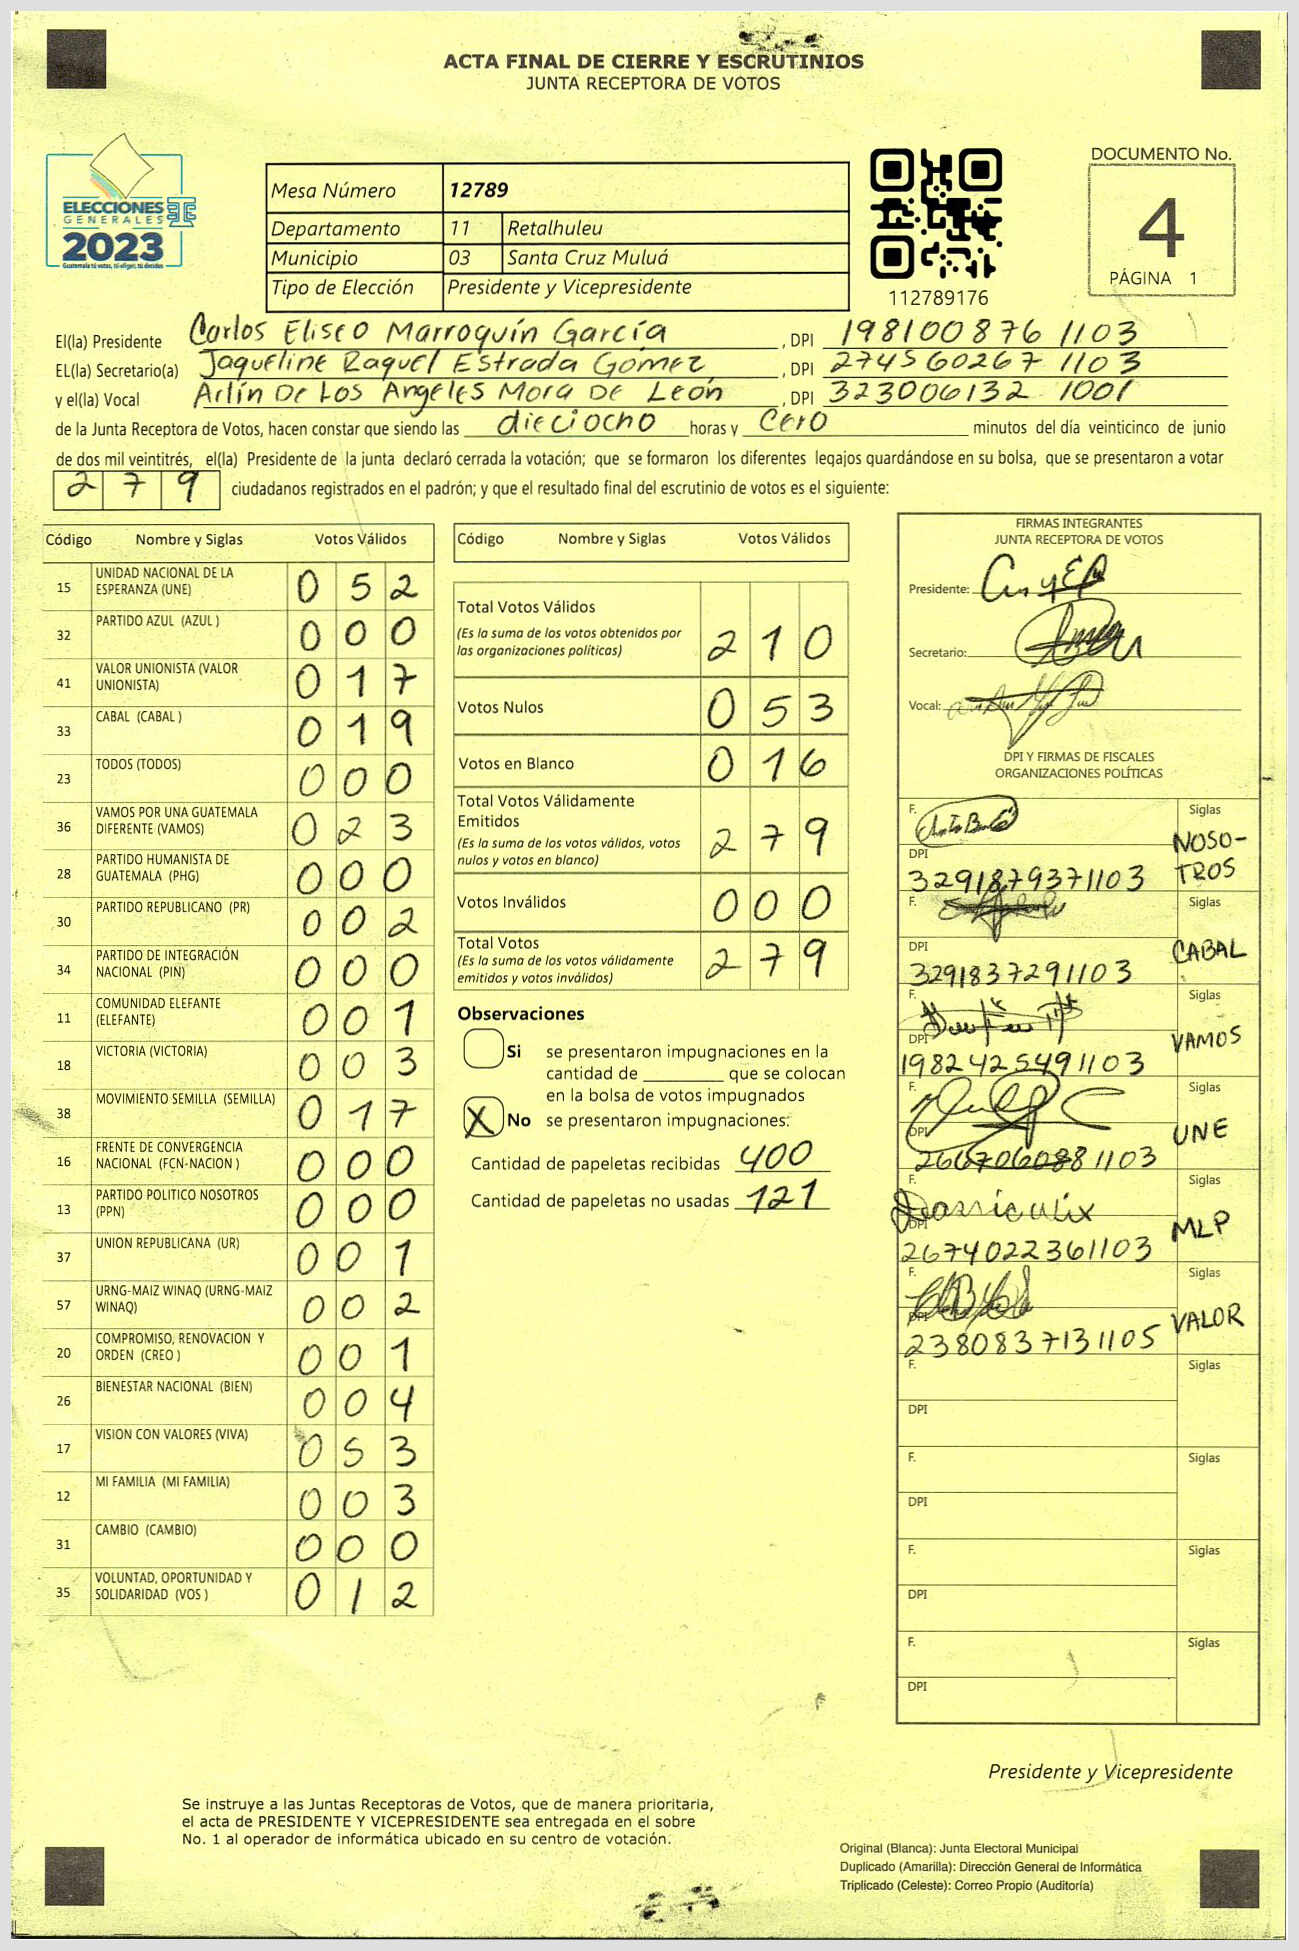 ACTA FINAL DE CIERRE Y ESCRUTINIOS
JUNTA RECEPTORA DE VOTOS
ELECCIONES
GENERALES
2023
Guatemala tú votas, tú eliges, tú decides
Mesa Número 12789
Departamento 11 Retalhuleu
Municipio 03 Santa Cruz Muluá
Tipo de Elección Presidente y Vicepresidente
112789176
DOCUMENTO No.
4
PÁGINA 1
El(la) Presidente Carlos Eliseo Marroquín García, DPI 198100876 1103
EL(la) Secretario(a) Jaqueline Raquel Estrada Gómez, DPI 274560267 1103
y el(la) Vocal Arlín De Los Angeles Mora De León, DPI 323006132 1001
de la Junta Receptora de Votos, hacen constar que siendo las dieciocho horas y cero minutos del día veinticinco de junio
de dos mil veintitrés, el(la) Presidente de la junta declaró cerrada la votación; que se formaron los diferentes legajos guardándose en su bolsa, que se presentaron a votar
279 ciudadanos registrados en el padrón; y que el resultado final del escrutinio de votos es el siguiente:
Código Nombre y Siglas Votos Válidos
15 UNIDAD NACIONAL DE LA ESPERANZA (UNE) 052
32 PARTIDO AZUL (AZUL ) 000
41 VALOR UNIONISTA (VALOR UNIONISTA) 017
33 CABAL (CABAL ) 019
23 TODOS (TODOS) 000
36 VAMOS POR UNA GUATEMALA DIFERENTE (VAMOS) 023
28 PARTIDO HUMANISTA DE GUATEMALA (PHG) 000
30 PARTIDO REPUBLICANO (PR) 002
34 PARTIDO DE INTEGRACIÓN NACIONAL (PIN) 000
11 COMUNIDAD ELEFANTE (ELEFANTE) 001
18 VICTORIA (VICTORIA) 003
38 MOVIMIENTO SEMILLA (SEMILLA) 017
16 FRENTE DE CONVERGENCIA NACIONAL (FCN-NACION ) 000
13 PARTIDO POLITICO NOSOTROS (PPN) 000
37 UNION REPUBLICANA (UR) 001
57 URNG-MAIZ WINAQ (URNG-MAIZ WINAQ) 002
20 COMPROMISO, RENOVACION Y ORDEN (CREO ) 001
26 BIENESTAR NACIONAL (BIEN) 004
17 VISION CON VALORES (VIVA) 053
12 MI FAMILIA (MI FAMILIA) 003
31 CAMBIO (CAMBIO) 000
35 VOLUNTAD, OPORTUNIDAD Y SOLIDARIDAD (VOS ) 012
Código Nombre y Siglas Votos Válidos
Total Votos Válidos
(Es la suma de los votos obtenidos por las organizaciones políticas) 210
Votos Nulos 053
Votos en Blanco 016
Total Votos Válidamente Emitidos
(Es la suma de los votos válidos, votos nulos y votos en blanco) 279
Votos Inválidos 000
Total Votos
(Es la suma de los votos válidamente emitidos y votos inválidos) 279
Observaciones
Si se presentaron impugnaciones en la
cantidad de ________ que se colocan
en la bolsa de votos impugnados
X No se presentaron impugnaciones.
Cantidad de papeletas recibidas 400
Cantidad de papeletas no usadas 121
FIRMAS INTEGRANTES
JUNTA RECEPTORA DE VOTOS
Presidente:
Secretario:
Vocal:
DPI Y FIRMAS DE FISCALES
ORGANIZACIONES POLÍTICAS
F. Siglas
DPI NOSO-
3291879371103 TROS
F. Siglas
DPI CABAL
3291837291103
F. Siglas
DPI VAMOS
1982425491103
F. Siglas
DPI UNE
2667060881103
F. Siglas
DPI MLP
2674022361103
F. Siglas
DPI VALOR
2380837131105
F. Siglas
DPI
F. Siglas
DPI
F. Siglas
DPI
F. Siglas
DPI
Presidente y Vicepresidente
Se instruye a las Juntas Receptoras de Votos, que de manera prioritaria,
el acta de PRESIDENTE Y VICEPRESIDENTE sea entregada en el sobre
No. 1 al operador de informática ubicado en su centro de votación.
Original (Blanca): Junta Electoral Municipal
Duplicado (Amarilla): Dirección General de Informática
Triplicado (Celeste): Correo Propio (Auditoría)